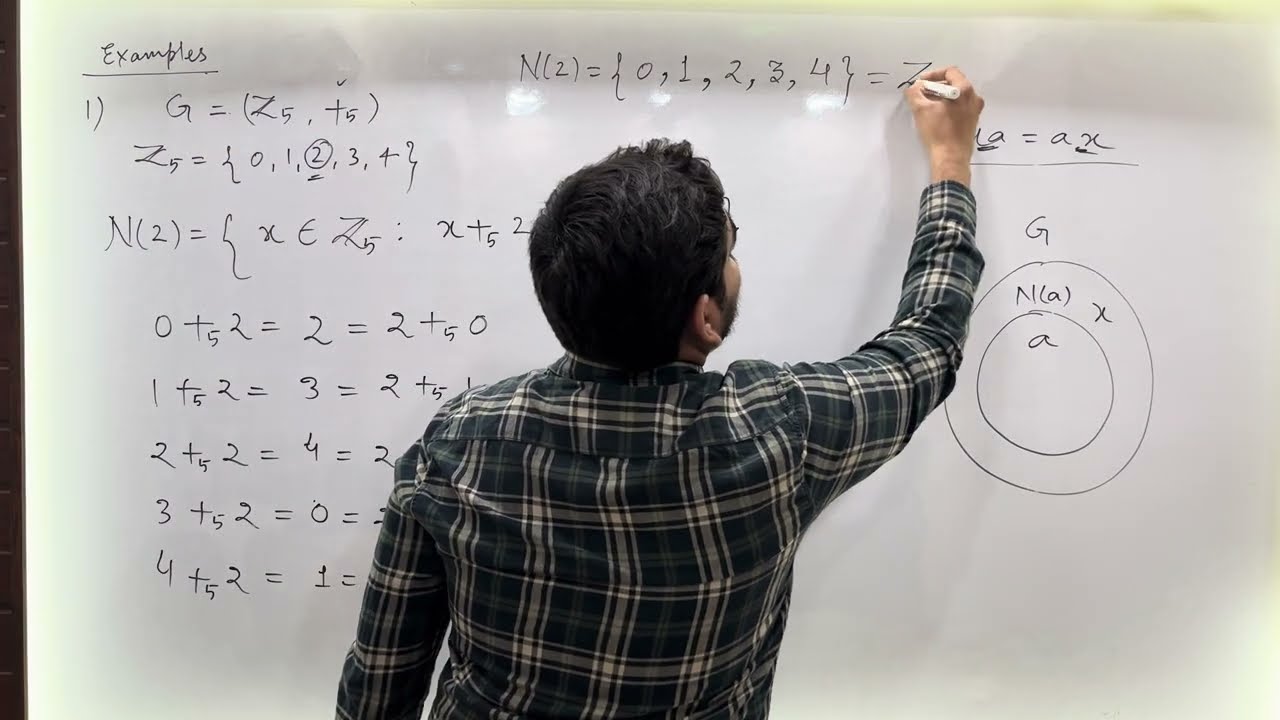 Examples
1) G = (Z₅, +₅)
Z₅ = { 0, 1, 2, 3, 4 }
N(2) = { x ∈ Z₅ : x +₅ 2
0 +₅ 2 = 2 = 2 +₅ 0
1 +₅ 2 = 3 = 2 +₅ 1
2 +₅ 2 = 4 = 2
3 +₅ 2 = 0 =
4 +₅ 2 = 1 =
N(2) = { 0, 1, 2, 3, 4 } = Z
a = a x
G
N(a) x
a